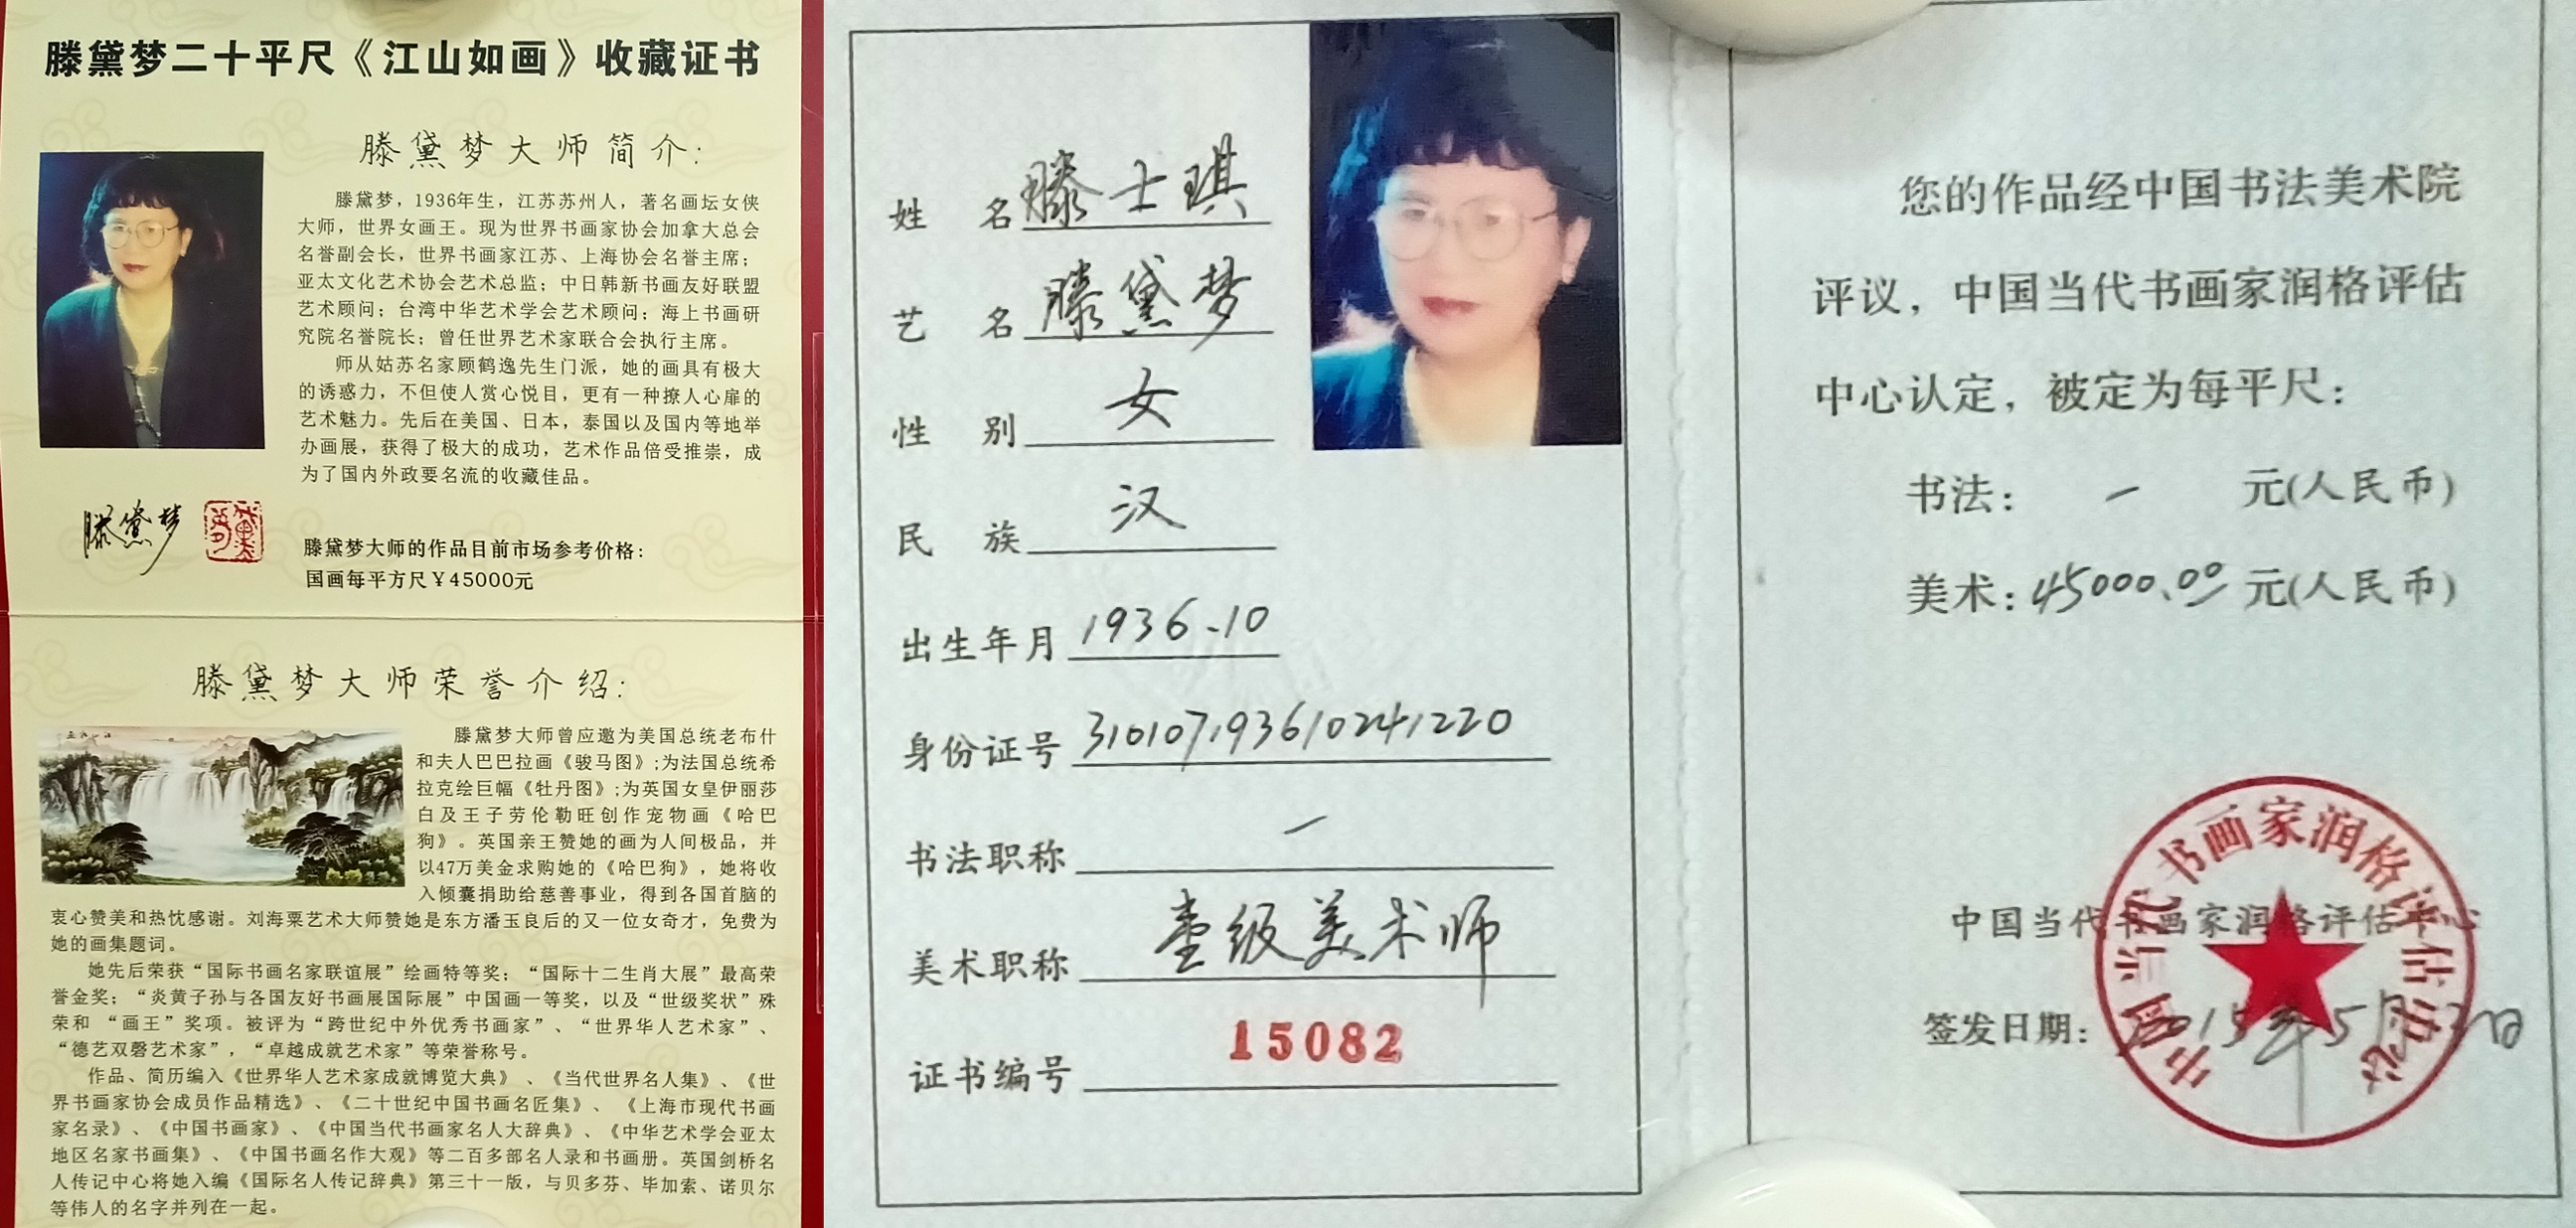 滕黛梦二十平尺《江山如画》收藏证书
滕黛梦大师简介：
滕黛梦，1936年生，江苏苏州人，著名画坛女侠
大师，世界女画王。现为世界书画家协会加拿大总会
名誉副会长，世界书画家江苏、上海协会名誉主席；
亚太文化艺术协会艺术总监；中日韩新书画友好联盟
艺术顾问；台湾中华艺术学会艺术顾问；海上书画研
究院名誉院长；曾任世界艺术家联合会执行主席。
师从姑苏名家顾鹤逸先生门派，她的画具有极大
的诱惑力，不但使人赏心悦目，更有一种撩人心扉的
艺术魅力。先后在美国、日本，泰国以及国内等地举
办画展，获得了极大的成功，艺术作品倍受推崇，成
为了国内外政要名流的收藏佳品。
滕黛梦
滕黛梦大师的作品目前市场参考价格：
国画每平方尺￥45000元
滕黛梦大师荣誉介绍：
滕黛梦大师曾应邀为美国总统老布什
和夫人巴巴拉画《骏马图》;为法国总统希
拉克绘巨幅《牡丹图》;为英国女皇伊丽莎
白及王子劳伦勒旺创作宠物画《哈巴
狗》。英国亲王赞她的画为人间极品，并
以47万美金求购她的《哈巴狗》，她将收
入倾囊捐助给慈善事业，得到各国首脑的
衷心赞美和热忱感谢。刘海粟艺术大师赞她是东方潘玉良后的又一位女奇才，免费为
她的画集题词。
她先后荣获“国际书画名家联谊展”绘画特等奖；“国际十二生肖大展”最高荣
誉金奖；“炎黄子孙与各国友好书画展国际展”中国画一等奖，以及“世级奖状”殊
荣和 “画王”奖项。被评为“跨世纪中外优秀书画家”、“世界华人艺术家”、
“德艺双磬艺术家”，“卓越成就艺术家”等荣誉称号。
作品、简历编入《世界华人艺术家成就博览大典》、《当代世界名人集》、《世
界书画家协会成员作品精选》、《二十世纪中国书画名匠集》、《上海市现代书画
家名录》、《中国书画家》、《中国当代书画家名人大辞典》、《中华艺术学会亚太
地区名家书画集》、《中国书画名作大观》等二百多部名人录和书画册。英国剑桥名
人传记中心将她入编《国际名人传记辞典》第三十一版，与贝多芬、毕加索、诺贝尔
等伟人的名字并列在一起。
姓 名 滕士琪
艺 名 滕黛梦
性 别 女
民 族 汉
出生年月 1936.10
身份证号 310107193610241220
书法职称 一
美术职称 壹级美术师
证书编号 15082
您的作品经中国书法美术院
评议，中国当代书画家润格评估
中心认定，被定为每平尺：
书法： 一 元(人民币)
美术：45000.00 元(人民币)
中国当代书画家润格评估中心
签发日期：2015年5月23日
中国当代书画家润格评估中心